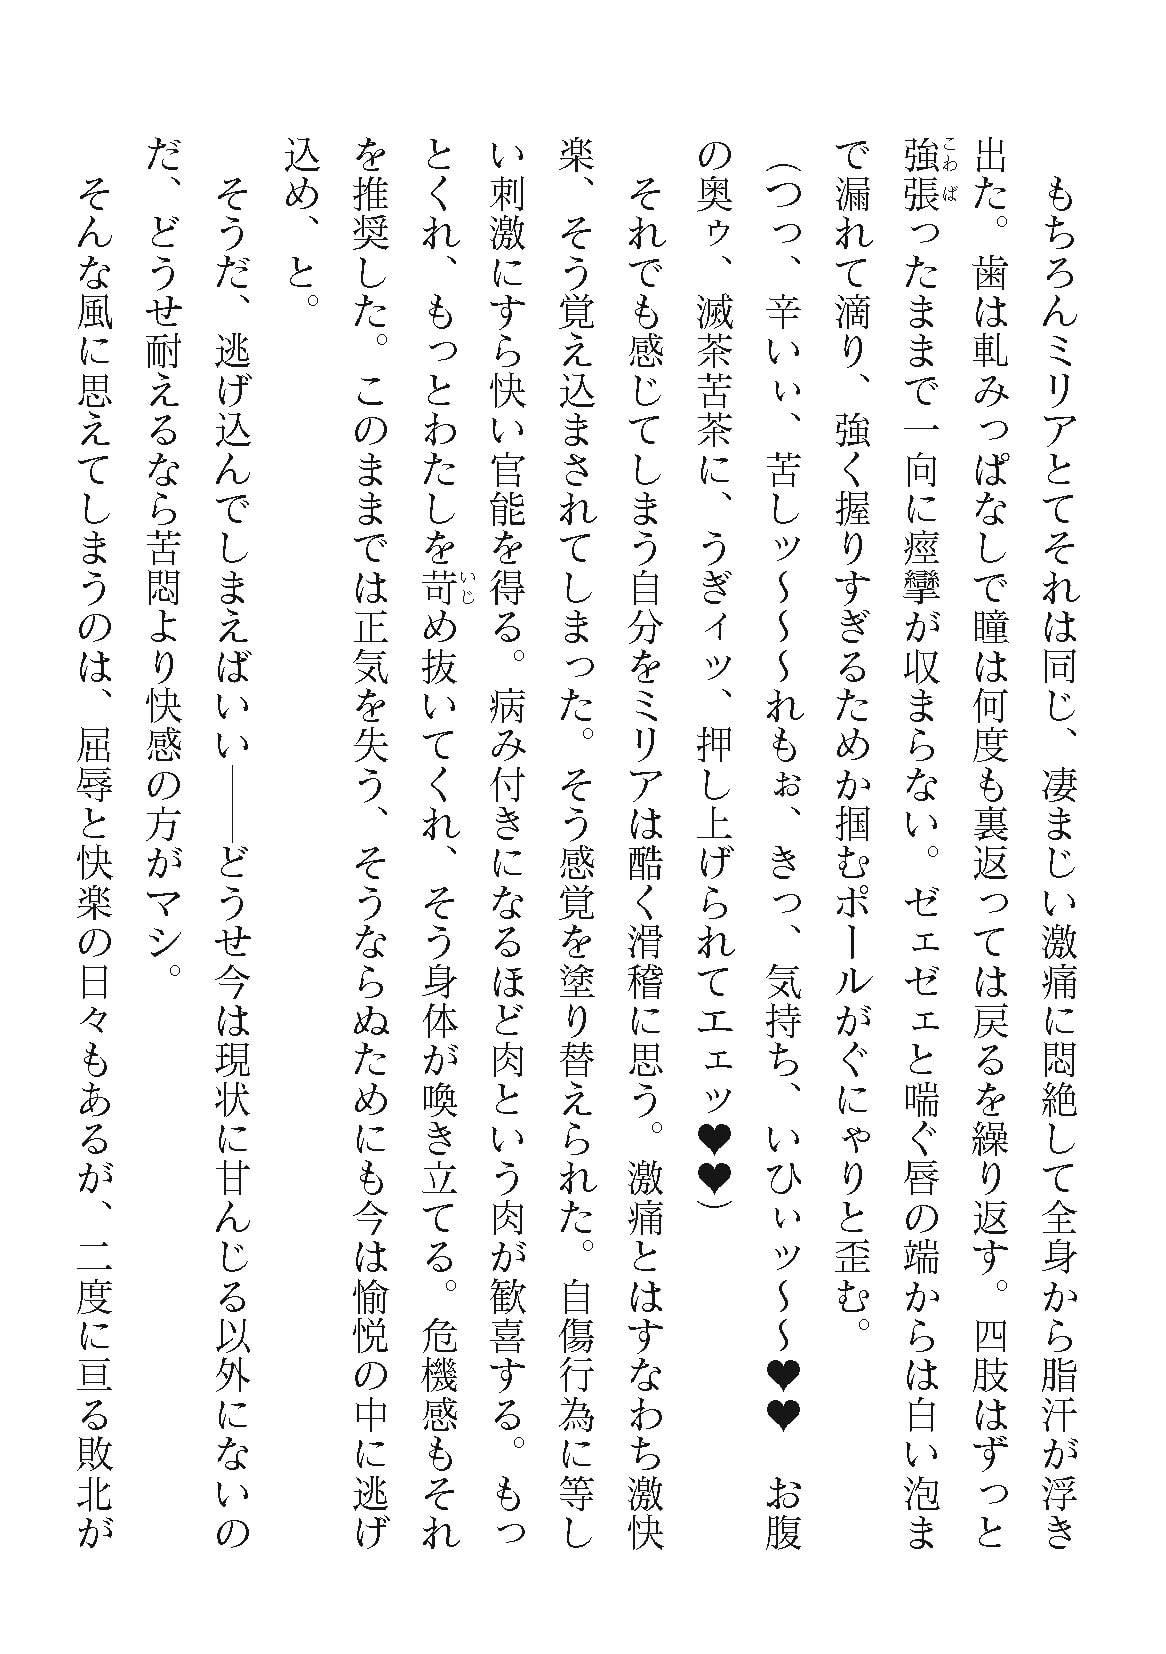 もちろんミリアとてそれは同じ、凄まじい激痛に悶絶して全身から脂汗が浮き
出た。歯は軋みっぱなしで瞳は何度も裏返っては戻るを繰り返す。四肢はずっと
強張ったままで一向に痙攣が収まらない。ゼェゼェと喘ぐ唇の端からは白い泡ま
こわば
で漏れて滴り、強く握りすぎるためか掴むポールがぐにゃりと歪む。
（つっ、辛いぃ、苦しッ～～～れもぉ、きっ、気持ち、いひぃッ～～♥♥　お腹
の奥ゥ、滅茶苦茶に、うぎィッ、押し上げられてエェッ♥♥）
それでも感じてしまう自分をミリアは酷く滑稽に思う。激痛とはすなわち激快
楽、そう覚え込まされてしまった。そう感覚を塗り替えられた。自傷行為に等し
い刺激にすら快い官能を得る。病み付きになるほど肉という肉が歓喜する。もっ
とくれ、もっとわたしを苛め抜いてくれ、そう身体が喚き立てる。危機感もそれ
いじ
を推奨した。このままでは正気を失う、そうならぬためにも今は愉悦の中に逃げ
込め、と。
そうだ、逃げ込んでしまえばいい――どうせ今は現状に甘んじる以外にないの
だ、どうせ耐えるなら苦悶より快感の方がマシ。
そんな風に思えてしまうのは、屈辱と快楽の日々もあるが、二度に亘る敗北が